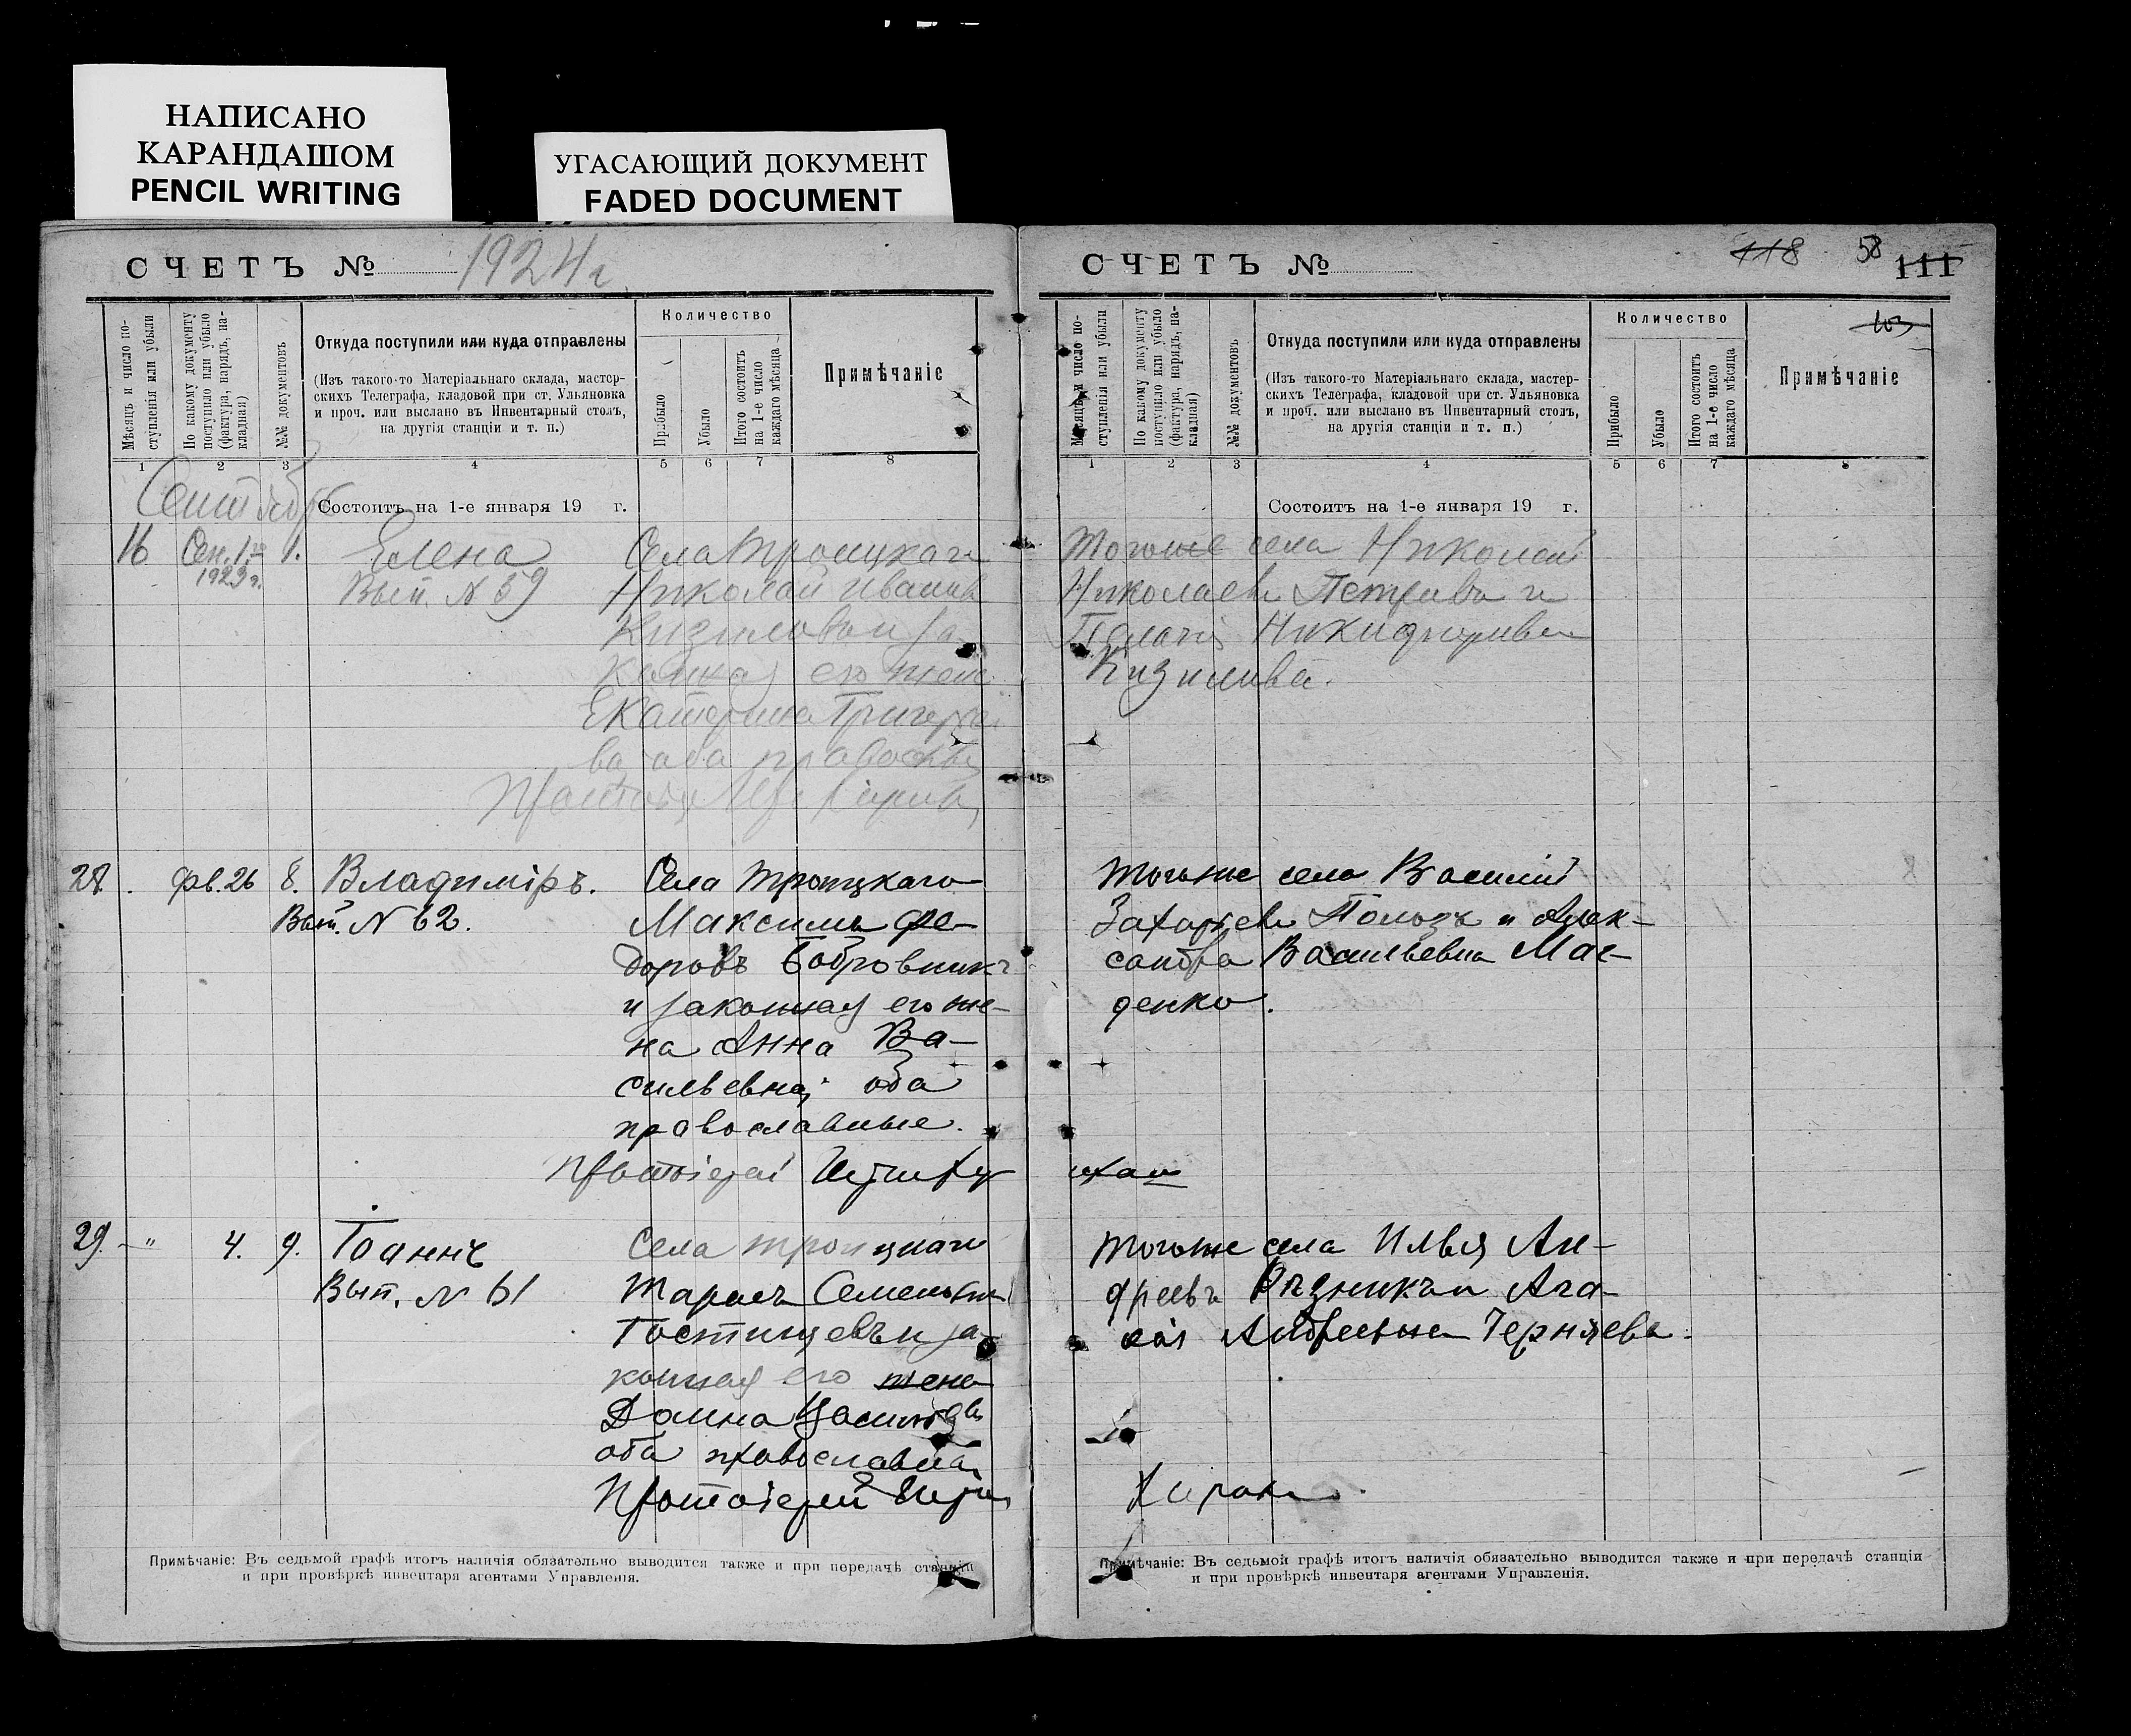 НАПИСАНО
КАРАНДАШОМ
PENCIL WRITING
УГАСАЮЩИЙ ДОКУМЕНТ
FADED DOCUMENT
СЧЕТЪ № 1924 г
Мѣсяцъ и число поступленія или убыли
По какому документу поступило или убыло (фактура, нарядъ, накладная)
№№ документовъ
Откуда поступили или куда отправлены
(Изъ такого-то Матеріальнаго склада, мастер-
скихъ Телеграфа, кладовой при ст. Ульяновка
и проч. или выслано въ Инвентарный столъ,
на другія станціи и т. п.)
Количество
Прибыло
Убыло
Итого состоитъ на 1-е число каждаго мѣсяца
Примѣчаніе
1 2 3 4 5 6 7 8
Сентябрь
Состоитъ на 1-е января 19 г.
16 Сен. 1 1. Елена Села Троицкаго
1923 г. Вып. N 59 Николай Иванов
его жена
Екатерина Григорье
ва оба
28. фв. 26 8. Владиміръ. Села Троицкаго
Вып. N 62. Максимъ Фе-
доровъ Бобровник
и законная его же-
на Анна Ва-
сильевна, оба
православные.
Протоіерей
29. — " 4. 9. Іоаннъ Села Троицкаго
Вып. N 61 Тарасъ Семенов
Гостищевъ и за-
конная его жена
Домна
оба православна
Протоіерей
Примѣчаніе: Въ седьмой графѣ итогъ наличія обязательно выводится также и при передачѣ станціи
и при провѣркѣ инвентаря агентами Управленія.
СЧЕТЪ №
118 58 111
103
Мѣсяцъ и число поступленія или убыли
По какому документу поступило или убыло (фактура, нарядъ, накладная)
№№ документовъ
Откуда поступили или куда отправлены
(Изъ такого-то Матеріальнаго склада, мастер-
скихъ Телеграфа, кладовой при ст. Ульяновка
и проч. или выслано въ Инвентарный столъ,
на другія станціи и т. п.)
Количество
Прибыло
Убыло
Итого состоитъ на 1-е число каждаго мѣсяца
Примѣчаніе
1 2 3 4 5 6 7 8
Состоитъ на 1-е января 19 г.
Тогоже села Николай
Николаевъ Петрова и
Никифорова
Кизилова.
Тогоже села Василій
Захаріев Полозъ и Алек-
сандра Васильевна Маг-
денко.
Тогоже села Илья Ан-
дреевъ Рѣзникъ и Ага-
Андреевна Черняева.
Примѣчаніе: Въ седьмой графѣ итогъ наличія обязательно выводится также и при передачѣ станціи
и при провѣркѣ инвентаря агентами Управленія.